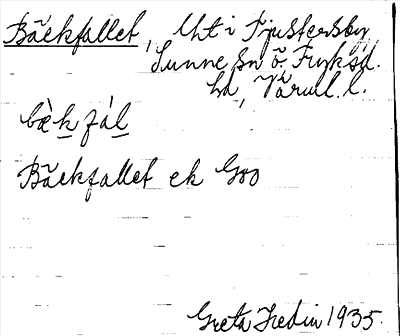 Bäckfallet, Uht i Tjustersby,
Sunne sn Ö. Fryksd.
hd, Värml. l.
bæ̀k fál
Bäckfallet ek Goo
Greta Hedin 1935.